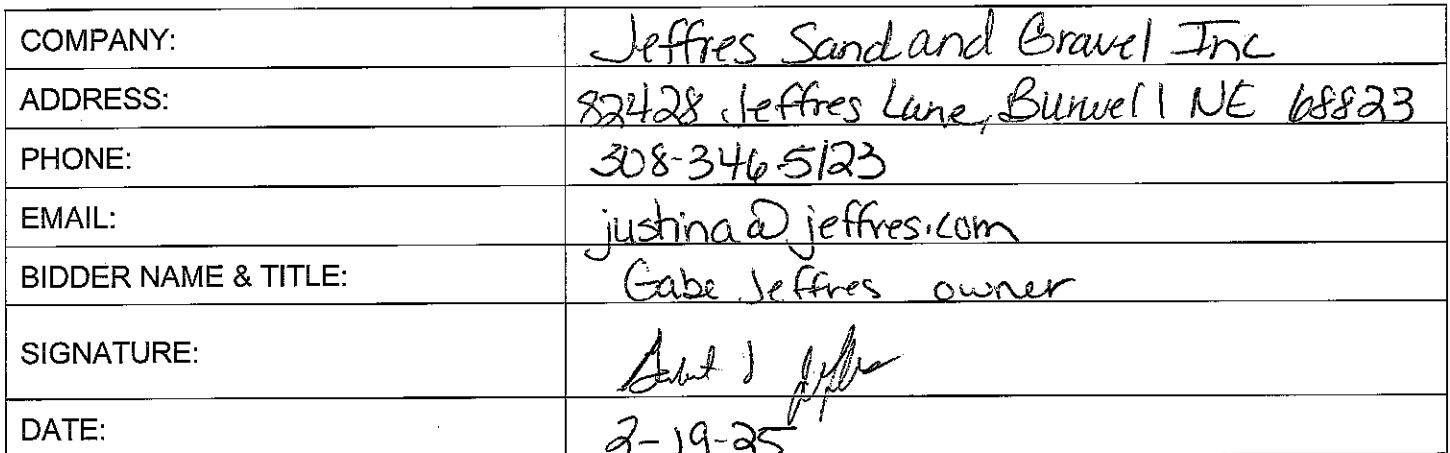 COMPANY: Jeffres Sand and Gravel Inc
ADDRESS: 82428 Jeffres Lane, Burwell NE 68823
PHONE: 308-346-5123
EMAIL: justina@jeffres.com
BIDDER NAME & TITLE: Gabe Jeffres owner
SIGNATURE:
DATE: 2-19-25